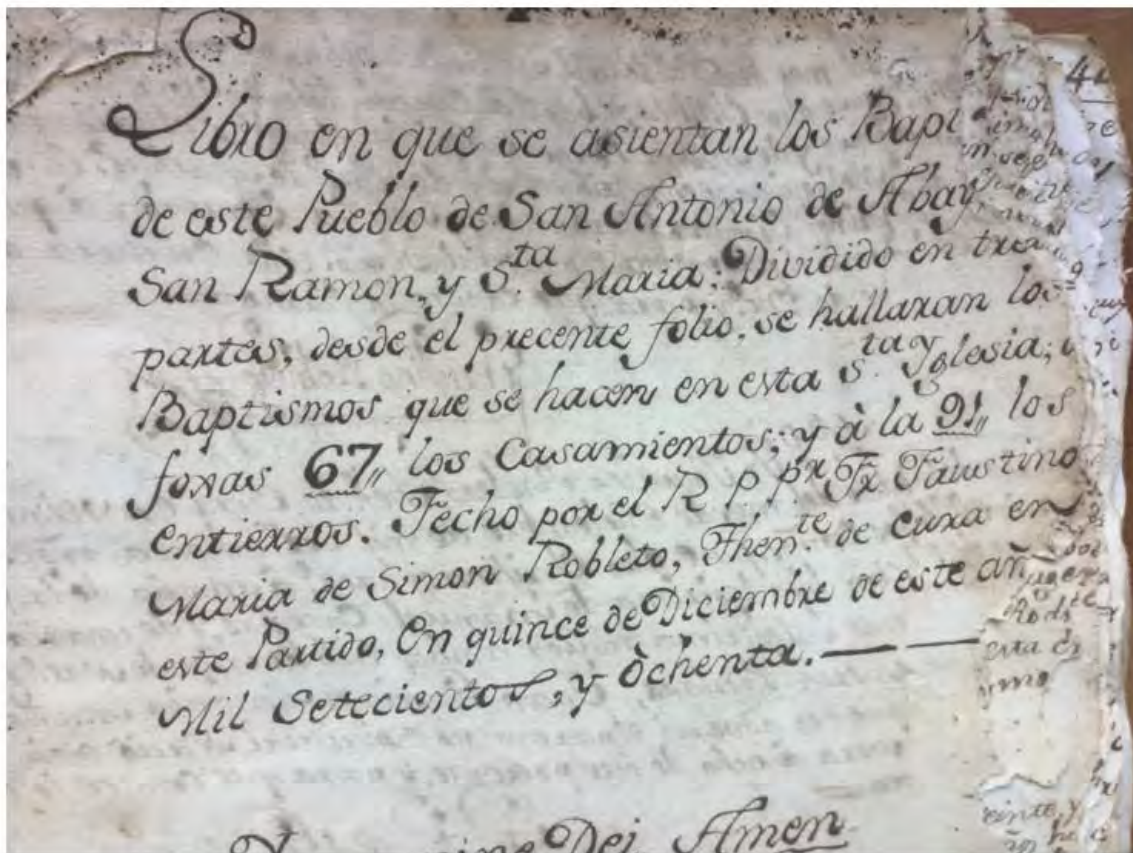 Libro en que se asientan los Bapt
de este Pueblo de San Antonio de Abay
San Ramon, y S.ta Maria: Dividido en tres
partes, desde el precente folio, se hallaran los
Baptismos que se hacen en esta S.ta Yglesia;
foxas 67,, los Casamientos; y à la 91,, los
entierros. Fecho por el R. P. Pr. Fr. Faustino
Maria de Simon Robleto, Thente. de Cura en
este Partido, En quince de Diciembre de este añ
Mil Setecientos, y òchenta. — —
Dei Amen